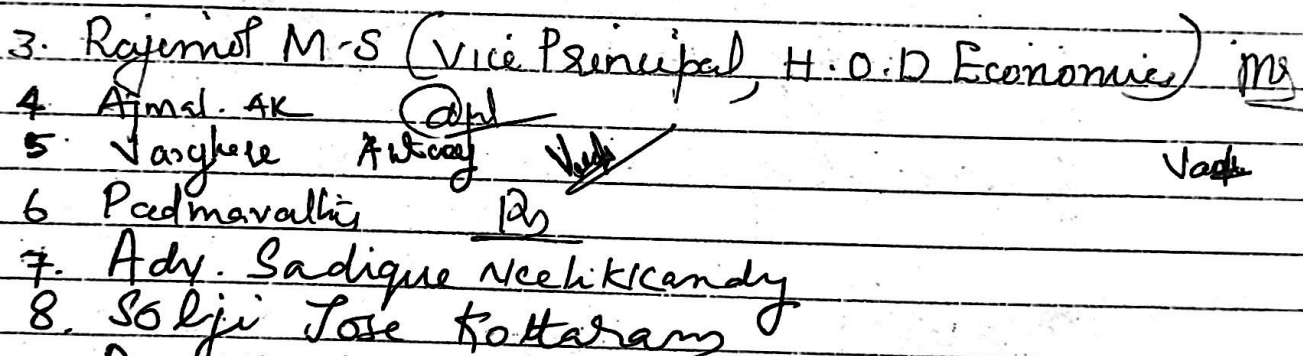 3. Rajimol M-S (Vice Principal, H.O.D Economics)
4 Ajmal. AK
5 Varghese Antony
6 Padmavathi
7. Adv. Sadique Neelikkandy
8. Solji Jose Kottaram